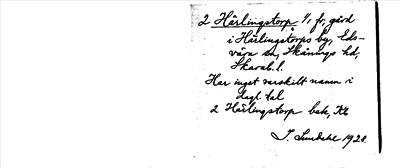 2 Härlingstorp 1/1 fr, gård
i Härlingstorps by, Eds-
vära sn, Skånings hd,
Skarab. l.
Har inget särskilt namn i
dagl. tal
2 Härlingstorp bek, Kk
I. Lundahl 1928.